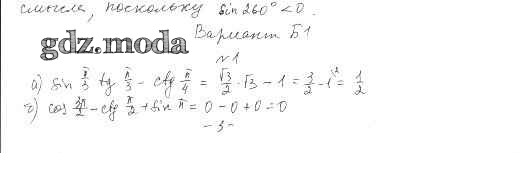 смысла, поскольку sin 260° < 0.
gdz.moda Вариант Б1
№1
а) sin π/3 tg π/3 - ctg π/4 = √3/2 · √3 - 1 = 3/2 - 1 = 1/2
г) cos 3π/2 - ctg π/2 + sin π = 0 - 0 + 0 = 0
- 3 -